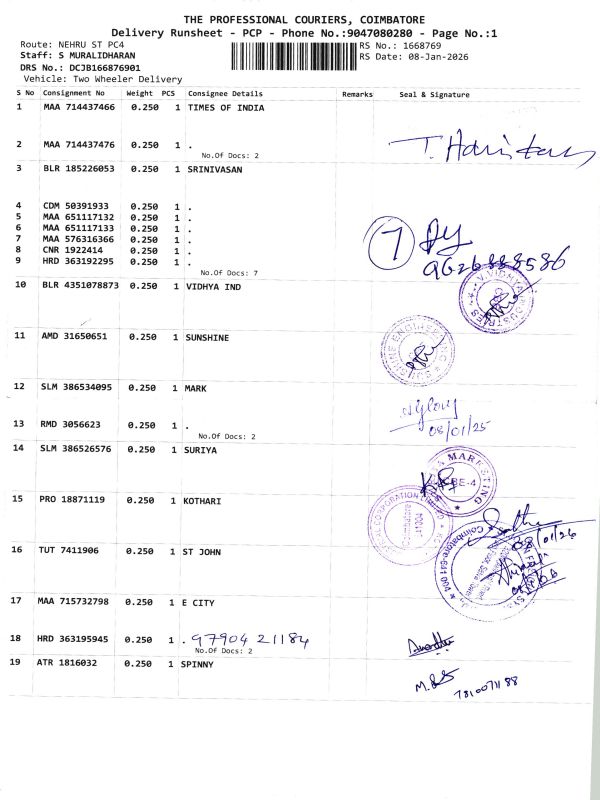 THE PROFESSIONAL COURIERS, COIMBATORE
Delivery Runsheet - PCP - Phone No.:9047080280 - Page No.:1
Route: NEHRU ST PC4
RS No.: 1668769
Staff: S MURALIDHARAN
RS Date: 08-Jan-2026
DRS No.: DCJB166876901
Vehicle: Two Wheeler Delivery
S No Consignment No Weight PCS Consignee Details Remarks Seal & Signature
1 MAA 714437466 0.250 1 TIMES OF INDIA
2 MAA 714437476 0.250 1 .
No.Of Docs: 2
3 BLR 185226053 0.250 1 SRINIVASAN
4 CDM 50391933 0.250 1 .
5 MAA 651117132 0.250 1 .
6 MAA 651117133 0.250 1 .
7 MAA 576316366 0.250 1 .
8 CNR 1922414 0.250 1 .
9 HRD 363192295 0.250 1 .
No.Of Docs: 7
7
10 BLR 4351078873 0.250 1 VIDHYA IND
11 AMD 31650651 0.250 1 SUNSHINE
12 SLM 386534095 0.250 1 MARK
08/01/25
13 RMD 3056623 0.250 1 .
No.Of Docs: 2
14 SLM 386526576 0.250 1 SURIYA
MARKETING
CBE-4
15 PRO 18871119 0.250 1 KOTHARI
CORPORATION LIMITED
Coimbatore
08/01/26
Coimbatore-641 004
16 TUT 7411906 0.250 1 ST JOHN
17 MAA 715732798 0.250 1 E CITY
18 HRD 363195945 0.250 1 . 97904 21184
No.Of Docs: 2
19 ATR 1816032 0.250 1 SPINNY